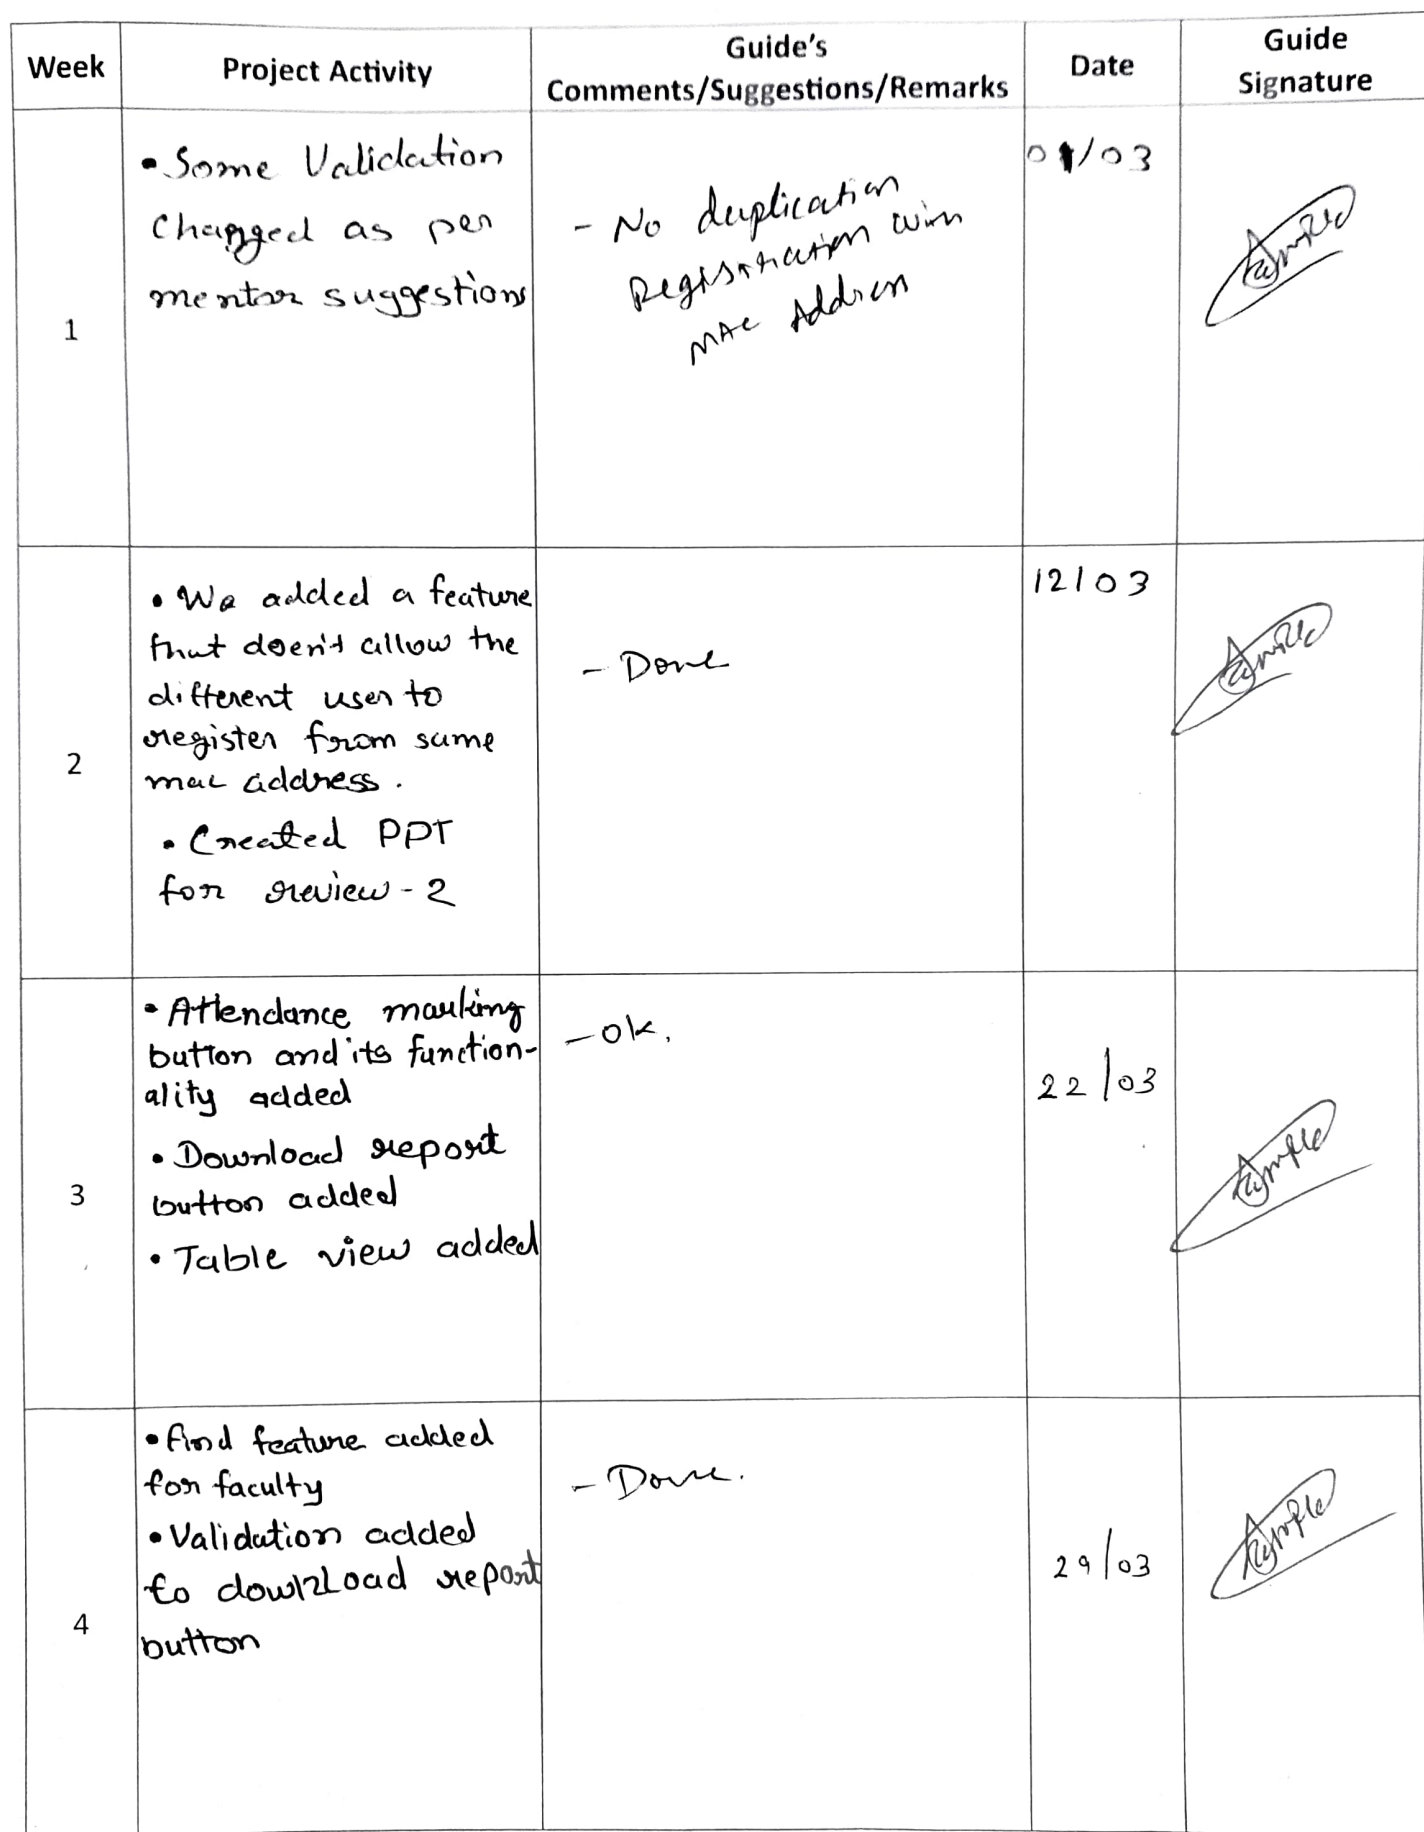 Week
Project Activity
Guide's
Comments/Suggestions/Remarks
Date
Guide
Signature
1
• Some Validation
Changed as per
mentor suggestions
- No duplication
Registration with
MAC Address
01/03
2
• We added a feature
that doen't allow the
different user to
register from same
mac address.
• Created PPT
for review-2
- Done
12/03
3
• Attendance marking
button and its function-
ality added
• Download report
button added
• Table view added
- ok.
22/03
4
• find feature added
for faculty
• Validation added
to download report
button
- Done.
29/03